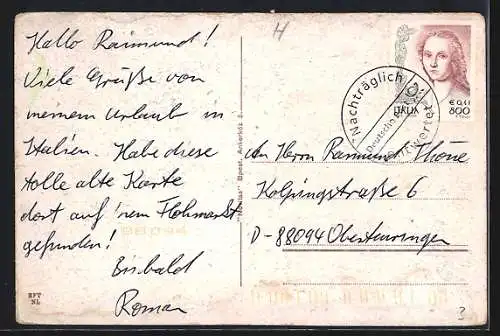 H
Hallo Raimund!
Viele Grüße von
meinem Urlaub in
Italien. Habe diese
tolle alte Karte
dort auf 'nem Flohmarkt
gefunden!
Bis bald
Roman
ITALIA
€ 0,41
800
Nachträglich
Deutsche
entwertet
An Herrn Raimund Thöne
Kolpingstraße 6
D-88094 Oberteuringen
88094
BFV
NL
?